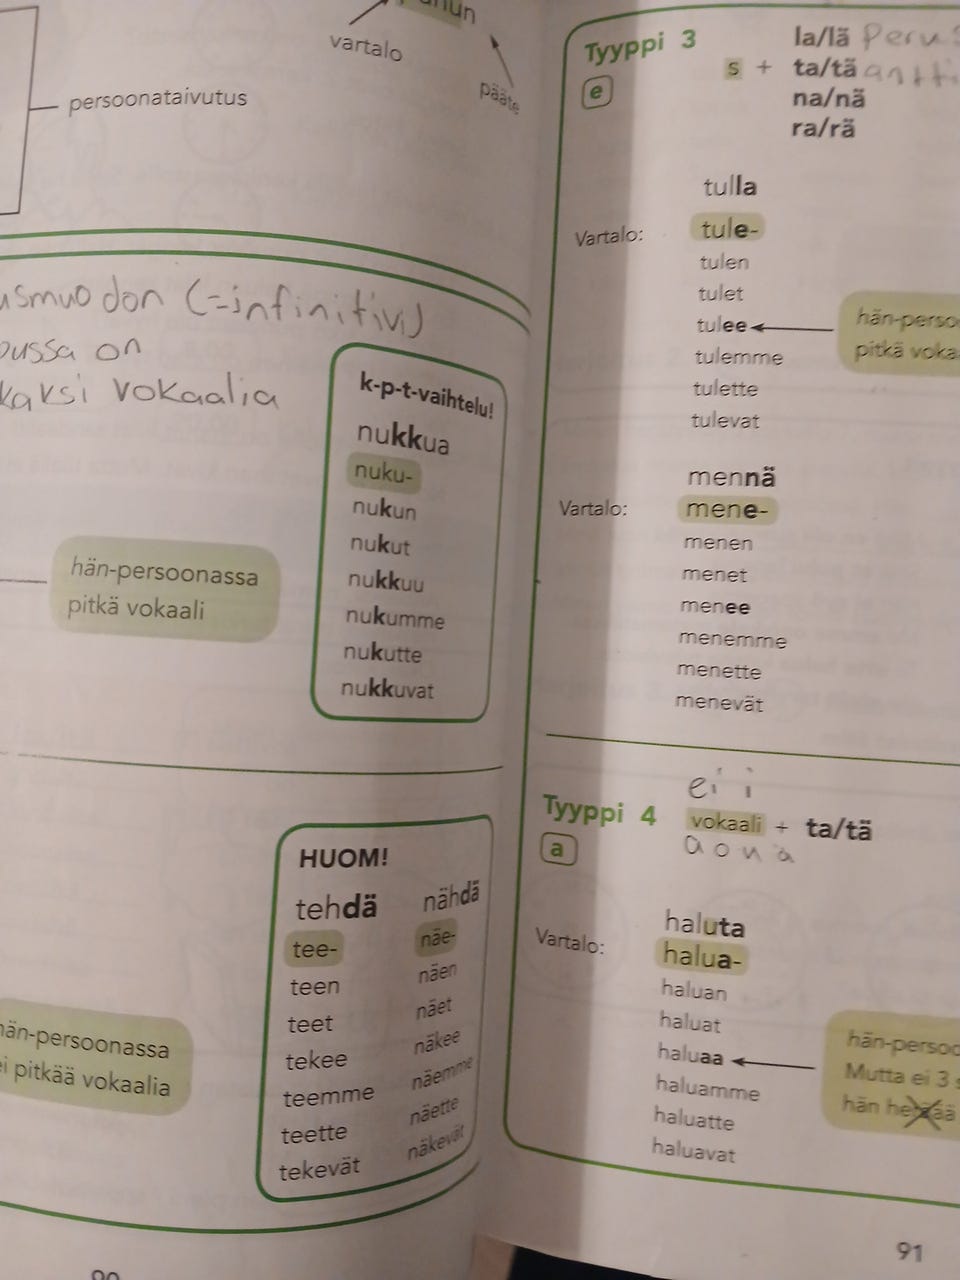 vartalo
pääte
persoonataivutus
(=infinitivi)
on
kaksi vokaalia
k-p-t-vaihtelu!
nukkua
nuku-
nukun
nukut
nukkuu
nukumme
nukutte
nukkuvat
hän-persoonassa
pitkä vokaali
HUOM!
tehdä nähdä
tee- näe-
teen näen
teet näet
tekee näkee
teemme näemme
teette näette
tekevät näkevät
hän-persoonassa
ei pitkää vokaalia
90
Tyyppi 3
e
s + la/lä
ta/tä
na/nä
ra/rä
tulla
Vartalo: tule-
tulen
tulet
tulee
tulemme
tulette
tulevat
pitkä
mennä
Vartalo: mene-
menen
menet
menee
menemme
menette
menevät
ei i
Tyyppi 4 vokaali + ta/tä
a
haluta
Vartalo: halua-
haluan
haluat
haluaa
haluamme
haluatte
haluavat
Mutta ei 3
hän
91